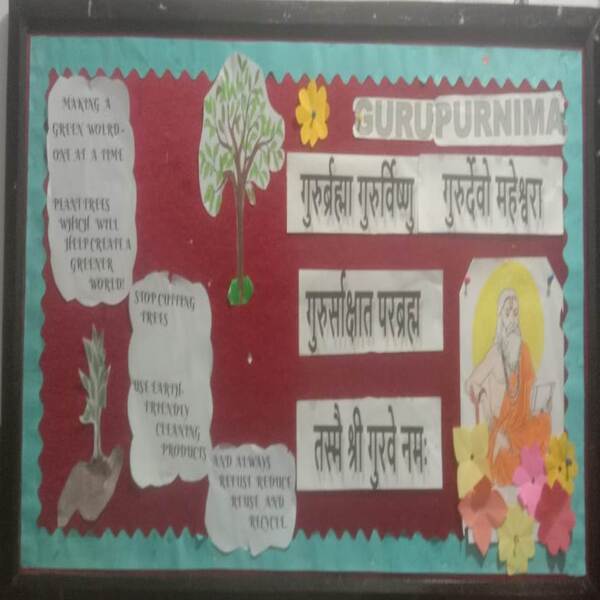 MAKING A
GREEN WOLRD-
ONE AT A TIME
PLANT TREES
WHICH WILL
HELP CREATE A
GREENER
WORLD!
STOP CUTTING
TREES
USE EARTH-
FRIENDLY
CLEANING
PRODUCTS
AND ALWAYS
REFUSE REDUCE
REUSE AND
RECYCLE.
GURUPURNIMA
गुरुर्ब्रह्मा गुरुर्विष्णु गुरुर्देवो महेश्वरा
गुरुर्साक्षात परब्रह्म
तस्मै श्री गुरवे नमः